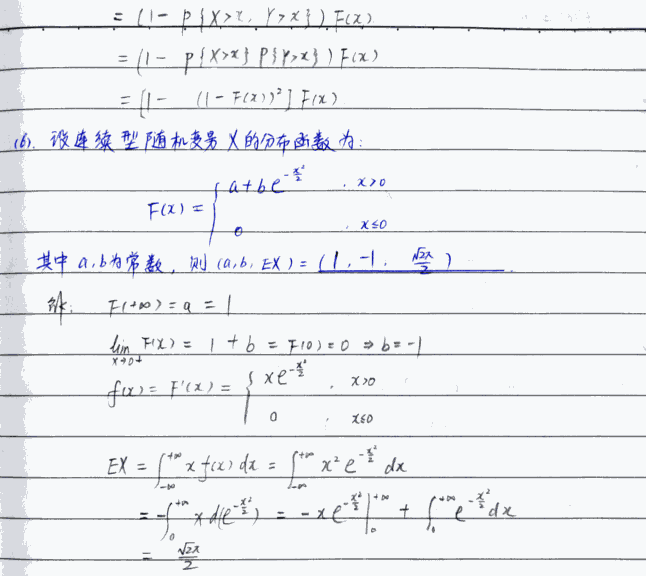 = (1 - P{X>x, Y>x}) F(x)
= (1 - P{X>x} P{Y>x}) F(x)
= [1 - (1-F(x))²] F(x)
(6). 设连续型随机变量 X 的分布函数为:
F(x) = { a + b e^{-x²/2} , x>0
0 , x≤0
其中 a, b 为常数, 则 (a, b, EX) = (1, -1, √2π/2).
解: F(+∞) = a = 1
lim_{x→0+} F(x) = 1 + b = F(0) = 0 ⇒ b = -1
f(x) = F'(x) = { x e^{-x²/2} , x>0
0 , x≤0
EX = ∫_{-∞}^{+∞} x f(x) dx = ∫_{-∞}^{+∞} x² e^{-x²/2} dx
= -∫_0^{+∞} x d(e^{-x²/2}) = -x e^{-x²/2} |_0^{+∞} + ∫_0^{+∞} e^{-x²/2} dx
= √2π/2